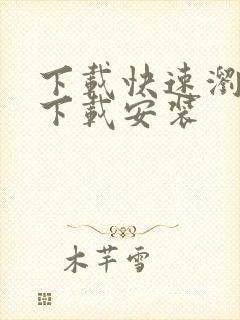 下載快速瀏
下載安裝
木芊雪